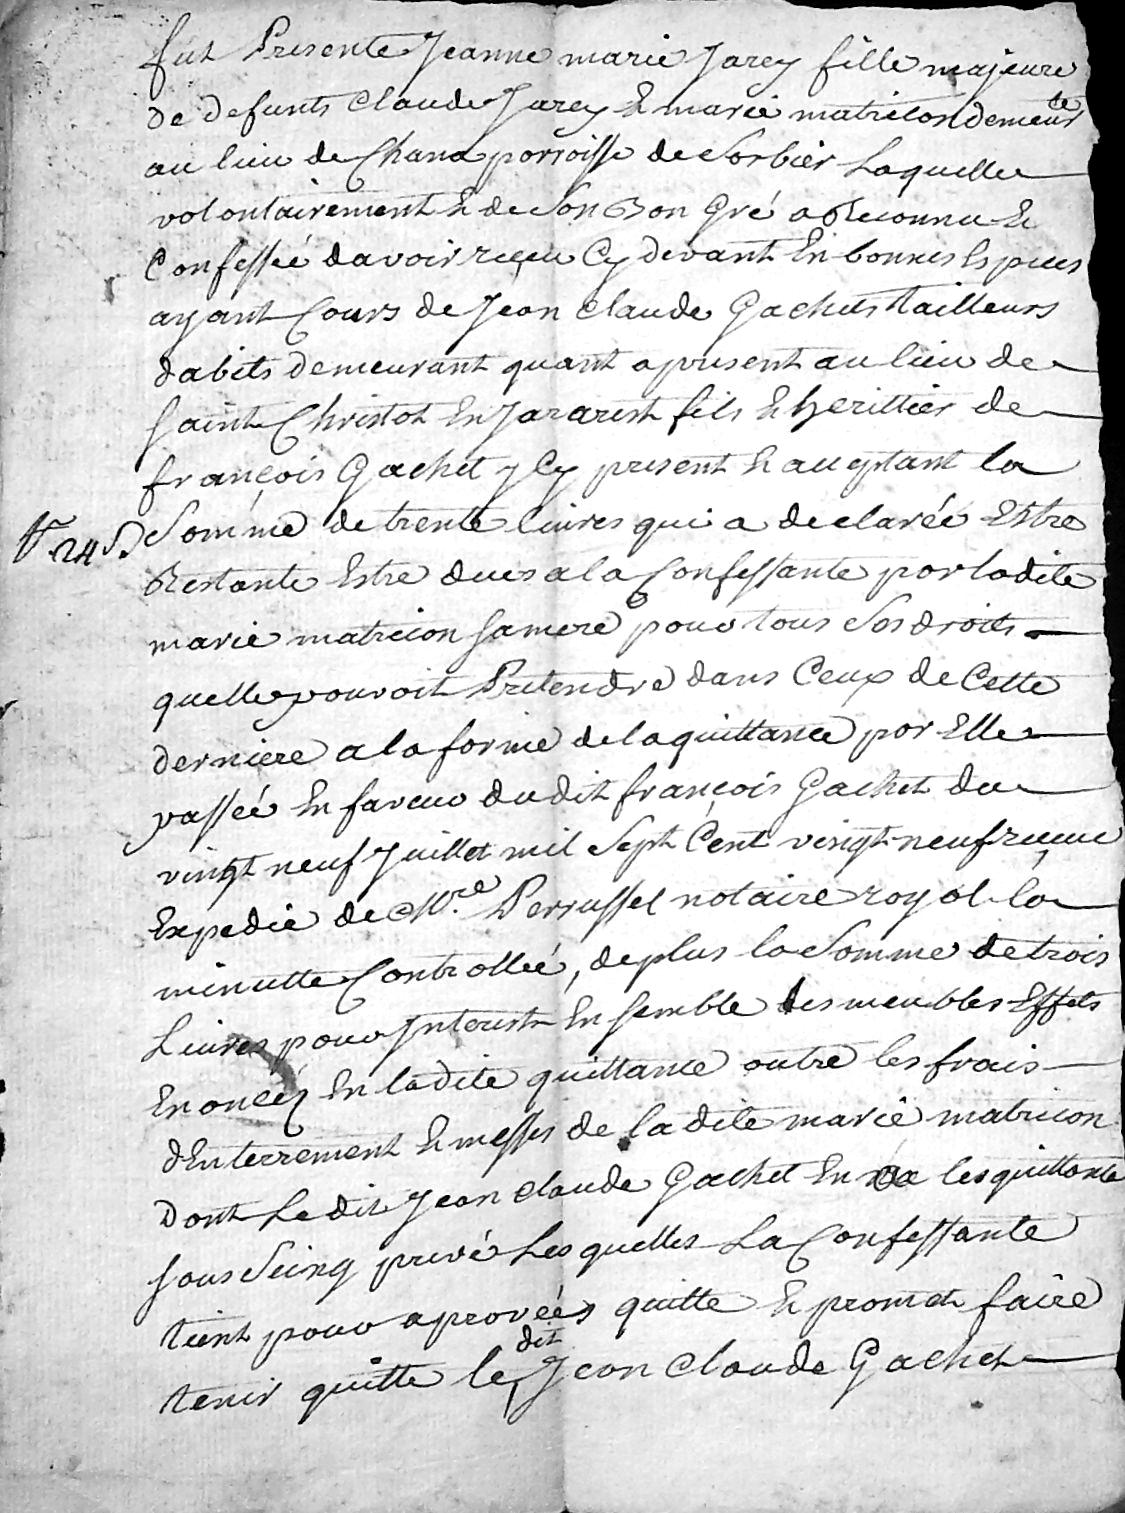 fut Presente Jeanne marie Jarey fille majeure
de defunts Claude Jarey & marie matricon demeur te
au lieu de Chana parroisse de Sorbier Laquelle
volontairement & de Son Bon Gré a Reconnu &
Confessée davoir reçeu Cy devant En bonnes Espices
ayant Cours de Jean Claude Gachet tailleurs
dabits demeurant quant a present au lieu de
saint Christot En Jararest fils & herittier de
françois Gachet y Cy present & aceptant la
24 s Somme de trente livres qui a declarée Estre
Restante Estre dues a la Confessante par ladite
marie matricon sa mere pour tous Ses droits
quelle pouvoit Pretendre dans Ceux de Cette
derniere a la forme de la quittance par Elle
passée En faveur dudit françois Gachet du
vingt neuf Juillet mil Sept Cent vingt neuf reçeue
Expedié de Mre Perrussel notaire royal la
minutte Controllée, de plus la Somme de trois
Livres pour Interest En semble des meubles Effets
Enoncéz En ladite quittance outre les frais
dEnterrement & messes de la dite marie matricon
Dont Le dit Jean Claude Gachet En a les quittance
sous Seing privé Les quelles La Confessante
tient pour aprovées quitte & promet faire
tenir quitte le dit Jean Claude Gachet